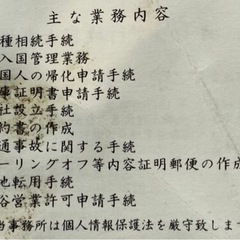 主な業務内容
種相続手続
入国管理業務
国人の帰化申請手続
庫証明書申請手続
社設立手続
約書の作成
通事故に関する手続
ーリングオフ等内容証明郵便の作成
地転用手続
俗営業許可申請手続
当事務所は個人情報保護法を厳守致しま